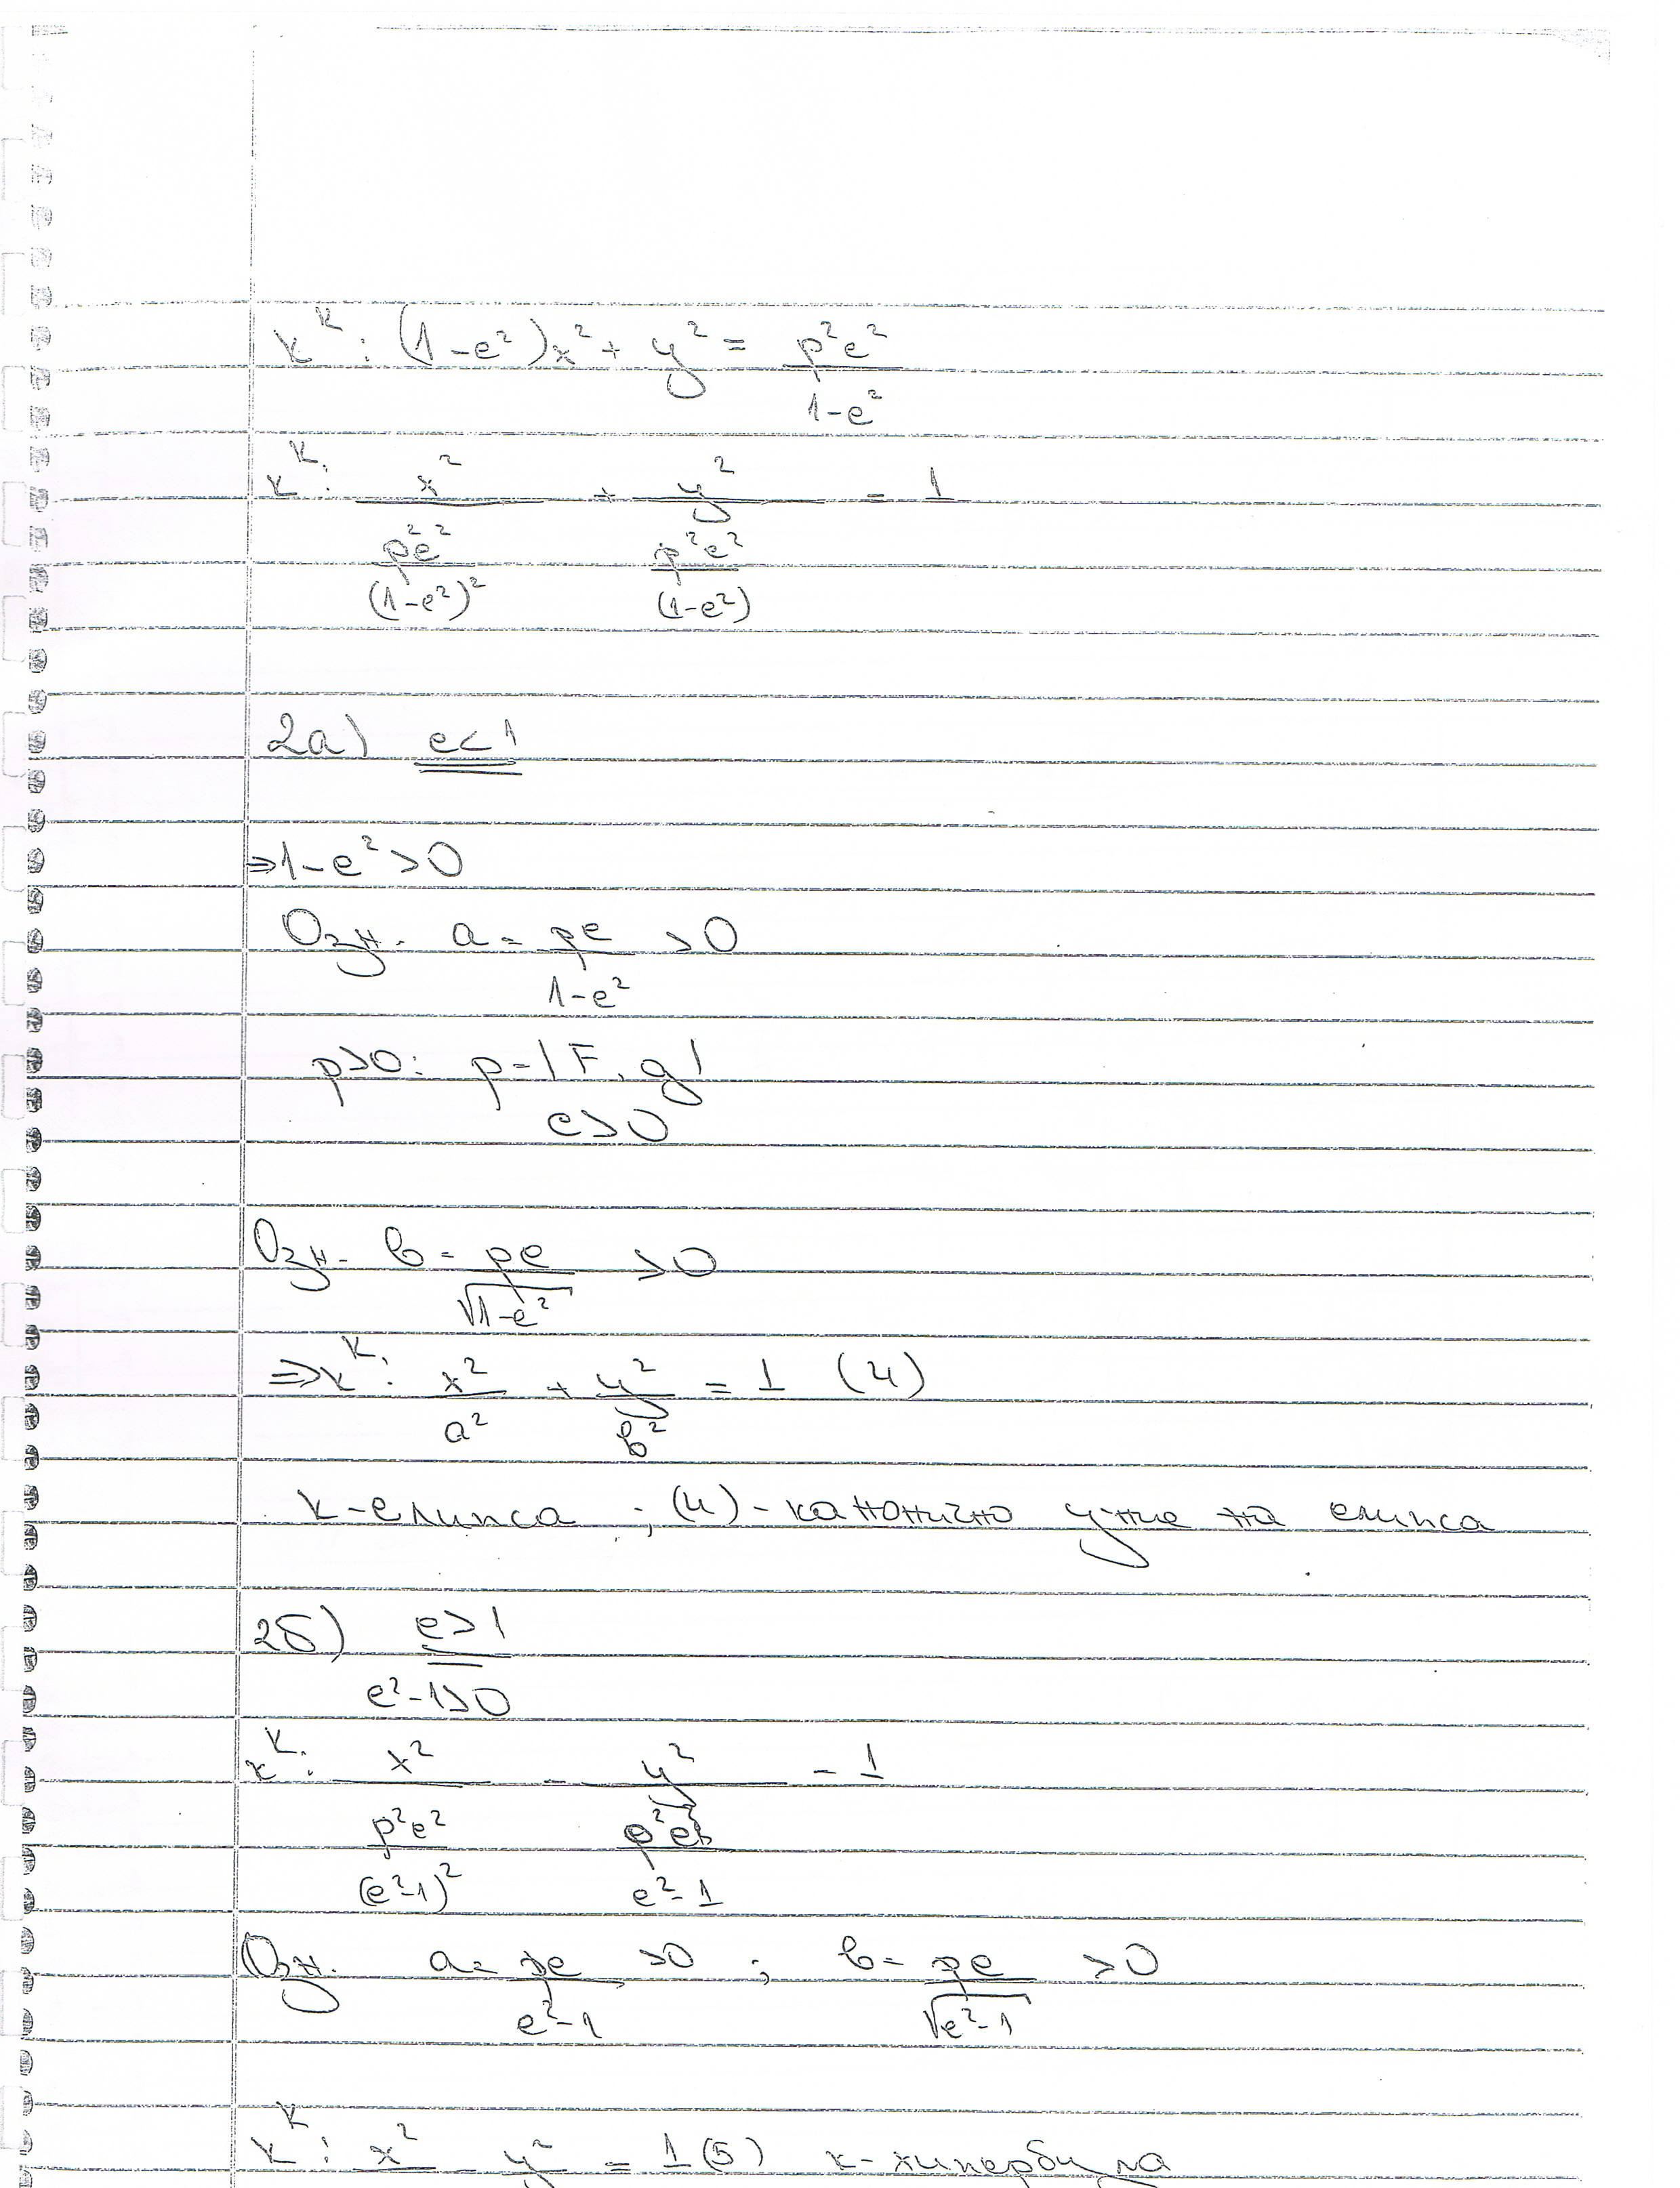 k^K : (1-e²)x² + y² = p²e² / (1-e²)
k^K : x² / (p²e² / (1-e²)²) + y² / (p²e² / (1-e²)) = 1
2а) e<1
⇒ 1-e² > 0
Озн. a = pe / (1-e²) > 0
p>0: p = |F, g|
e>0
Озн. b = pe / √(1-e²) > 0
⇒ k^K : x²/a² + y²/b² = 1 (4)
k-елипса ; (4) - канонично у-ние на елипса
2б) e>1
e²-1>0
k^K : x² / (p²e² / (e²-1)²) - y² / (p²e² / (e²-1)) = 1
Озн. a = pe / (e²-1) > 0 ; b = pe / √(e²-1) > 0
k^K : x² - y² = 1 (5) k-хипербула